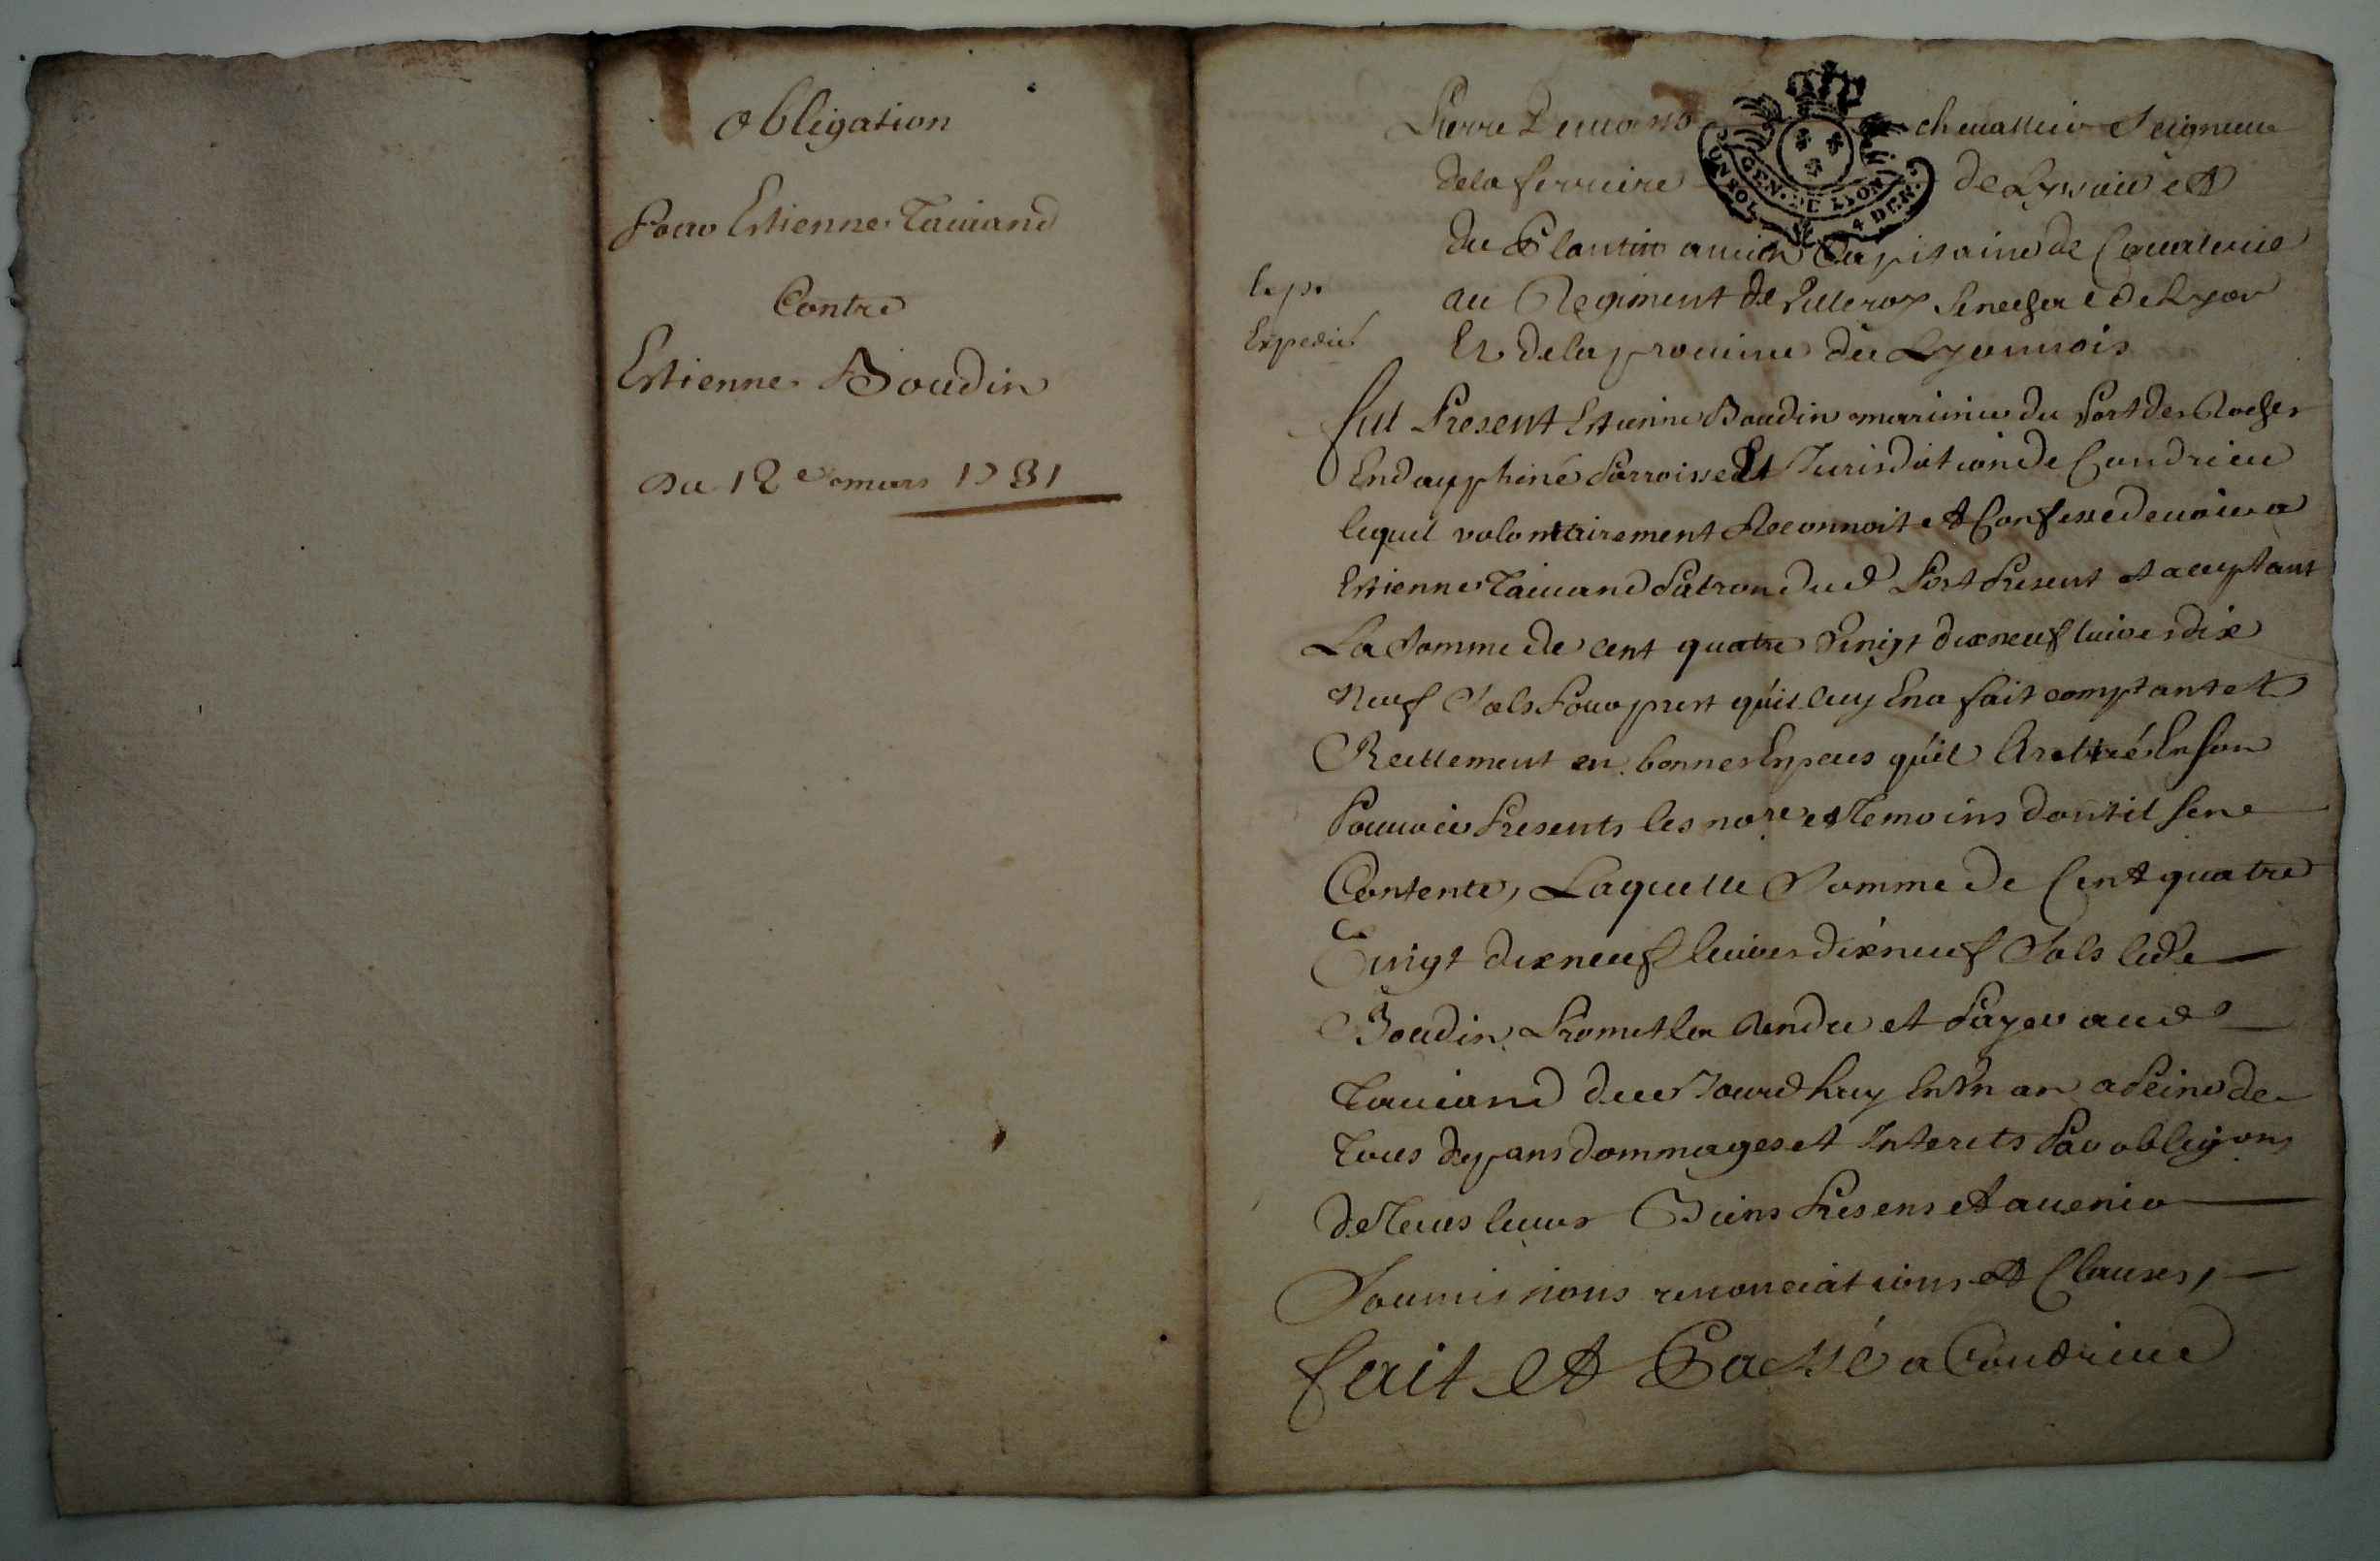 obligation
Pour Estienne Tauiand
Contre
Estienne Boudin
Du 12e mars 1731
Pierre chevallier Seigneur
de la ferriere de et
du Plantin ancien Capitaine de Cauallerie
au Regiment de Villeroy Senechal de Lyon
Et de la prouince du Lyonnois
GEN. DE LYON
UN SOL 4 DEN.
Expedié
fut Present Estienne Boudin marinier du Port des Roches
En dauphiné Parroisse Et Jurisdiction de Condrieu
lequel volontairement Reconnoit et Confesse deuoir a
Estienne Tauiand Patron dud Port Present et acceptant
La Somme de cent quatre Vingt dixneuf liures dix
Neuf Sols Pour prest qu'il luy En a fait comptant et
Reellement en bonnes Especes qu'il A retiré En son
Pouuoir Presents les nore et Temoins dont il sen
Contente, Laquelle Somme de Cent quatre
Vingt dixneuf liures dixneuf Sols led
Boudin Promet la Rendre et Payer aud
Tauiand de ce Jourdhuy En Vn an a Peine de
Tous depans dommages et Interets Par obligaons
de Tous leurs Biens Presens et auenir
Soumissions renonciations et Clauses,
fait et Passé a Condrieu